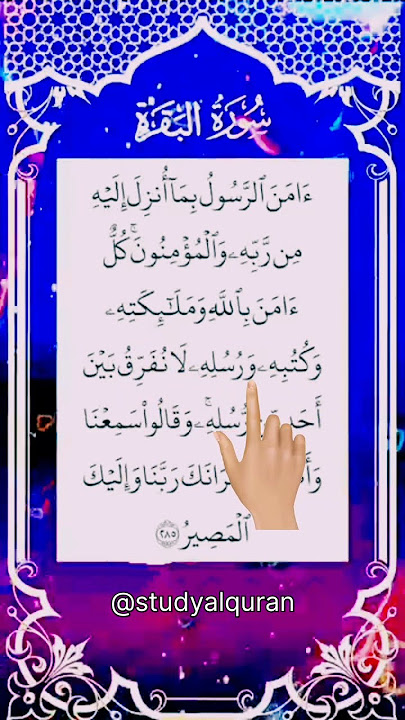 سُورَةُ البَقَرَةِ
ءَامَنَ ٱلرَّسُولُ بِمَآ أُنزِلَ إِلَيْهِ
مِن رَّبِّهِۦ وَٱلْمُؤْمِنُونَۚ كُلٌّ
ءَامَنَ بِٱللَّهِ وَمَلَـٰٓئِكَتِهِۦ
وَكُتُبِهِۦ وَرُسُلِهِۦ لَا نُفَرِّقُ بَيْنَ
أَحَدٍ رُّسُلِهِۦۚ وَقَالُوا۟ سَمِعْنَا
رَبَّنَا وَإِلَيْكَ
ٱلْمَصِيرُ ٢٨٥
@studyalquran